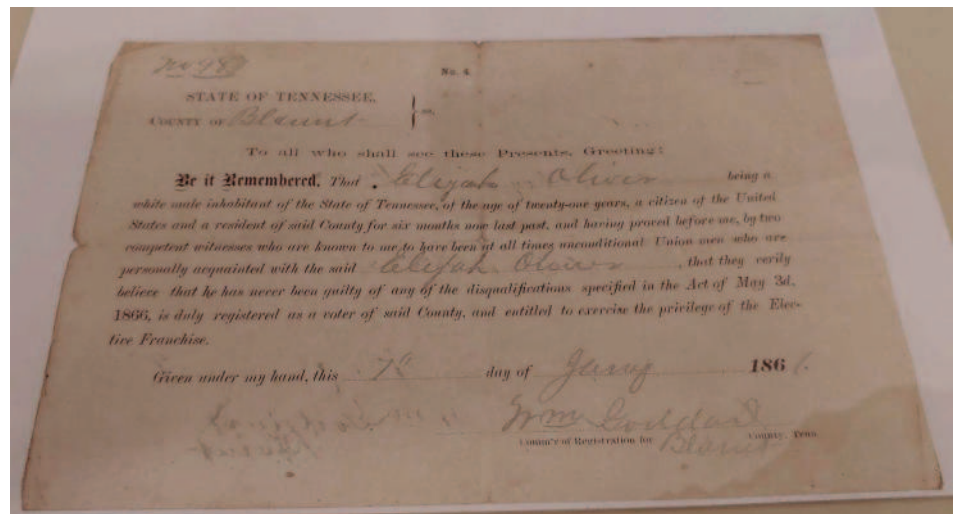 No 48
No. 4.
STATE OF TENNESSEE,
COUNTY OF Blount ss.
To all who shall see these Presents, Greeting:
Be it Remembered, That Elijah Oliver being a
white male inhabitant of the State of Tennessee, of the age of twenty-one years, a citizen of the United
States and a resident of said County for six months now last past, and having proved before me, by two
competent witnesses who are known to me to have been at all times unconditional Union men who are
personally acquainted with the said Elijah Oliver, that they verily
believe that he has never been guilty of any of the disqualifications specified in the Act of May 3d,
1866, is duly registered as a voter of said County, and entitled to exercise the privilege of the Elec-
tive Franchise.
Given under my hand, this 7th day of 186
Wm Goddard
Comm'r of Registration for Blount County, Tenn.